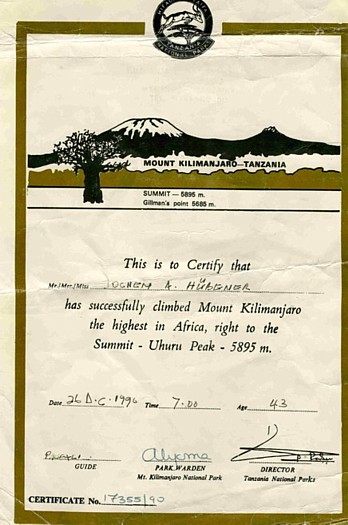 TANZANIA
NATIONAL PARKS
MOUNT KILIMANJARO—TANZANIA
SUMMIT — 5895 m.
Gillman's point 5685 m.
This is to Certify that
Mr./Mrs./Miss JOCHEM A. HÜBENER
has successfully climbed Mount Kilimanjaro
the highest in Africa, right to the
Summit - Uhuru Peak - 5895 m.
Date 26 DEC. 1990 Time 7.00 Age 43
GUIDE
PARK WARDEN
Mt. Kilimanjaro National Park
DIRECTOR
Tanzania National Parks
CERTIFICATE No. 17355/90